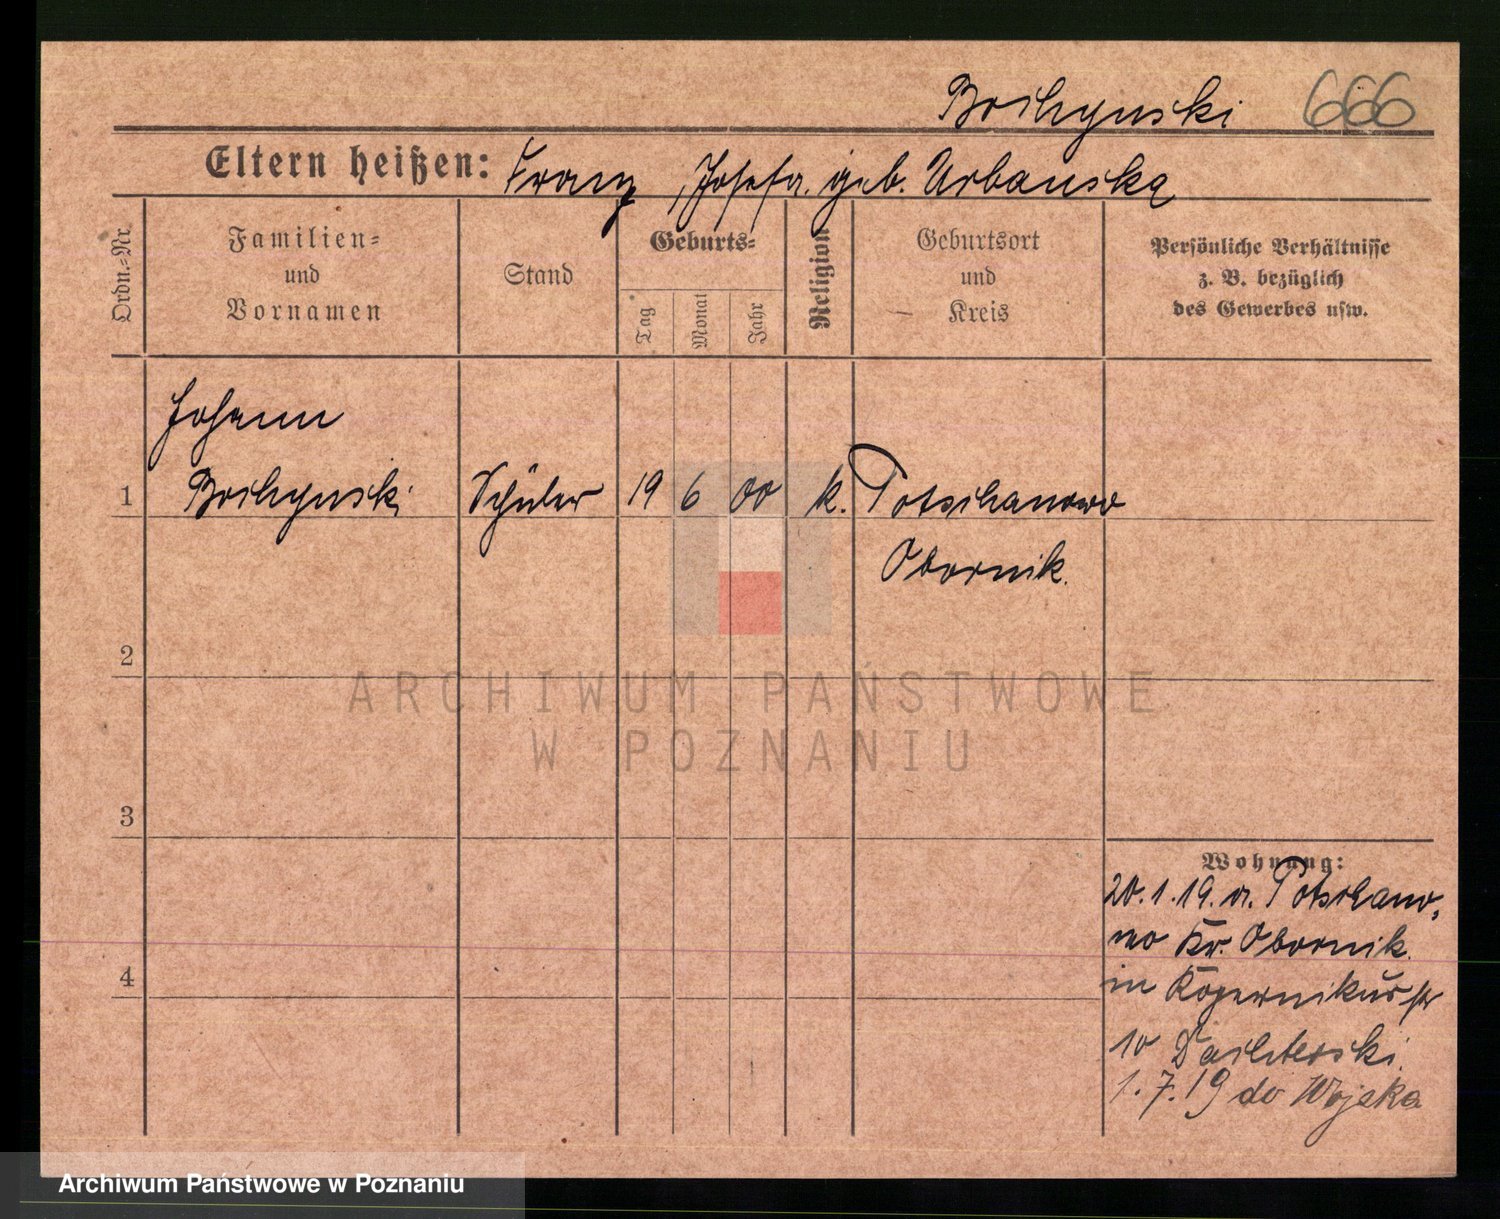 Bochynski 666
Eltern heißen: Franz, Josefa geb. Urbanska
Ordn.-Nr.
Familien-
und
Vornamen
Stand
Geburts-
Tag
Monat
Jahr
Religion
Geburtsort
und
Kreis
Persönliche Verhältnisse
z. B. bezüglich
des Gewerbes usw.
Johann
1 Bochynski Schüler 19 6 00 k. Potschanowo
Obornik.
2
ARCHIWUM PAŃSTWOWE
W POZNANIU
3
Wohnung:
20.1.19. v. Potschano-
wo Kr. Obornik.
4
in Kopernikusstr
10
1.7.19 do Wojska
Archiwum Państwowe w Poznaniu